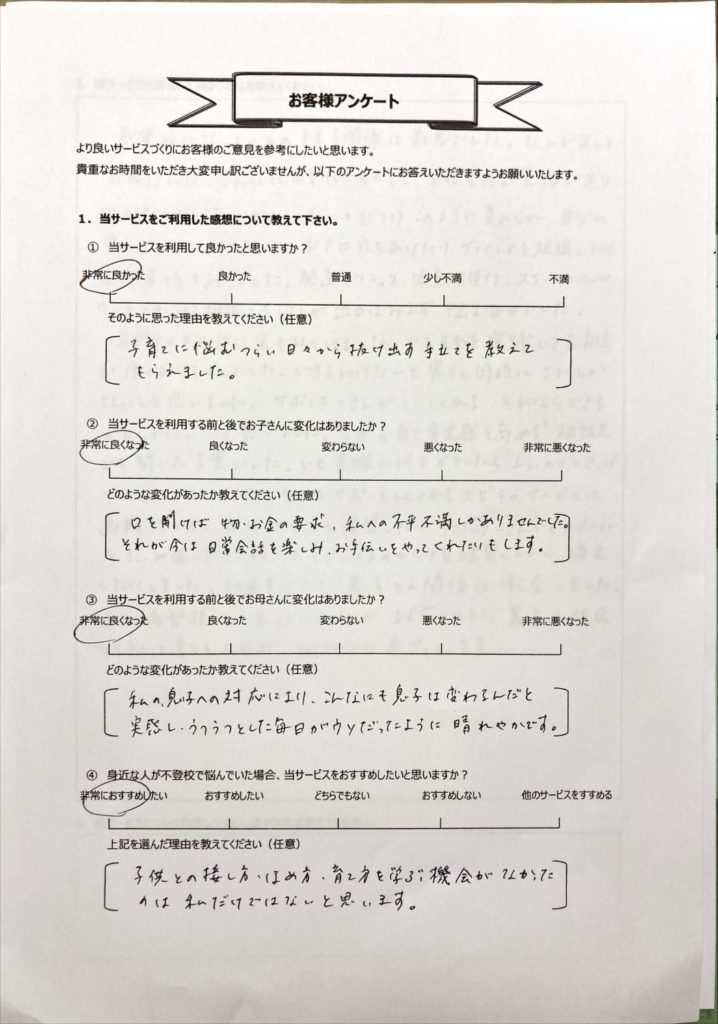 お客様アンケート
より良いサービスづくりにお客様のご意見を参考にしたいと思います。
貴重なお時間をいただき大変申し訳ございませんが、以下のアンケートにお答えいただきますようお願いいたします。
1．当サービスをご利用した感想について教えて下さい。
① 当サービスを利用して良かったと思いますか？
非常に良かった 良かった 普通 少し不満 不満
そのように思った理由を教えてください（任意）
子育てに悩むつらい日々から抜け出す手立てを教えて
もらえました。
② 当サービスを利用する前と後でお子さんに変化はありましたか？
非常に良くなった 良くなった 変わらない 悪くなった 非常に悪くなった
どのような変化があったか教えてください（任意）
口を開けば物・お金の要求，私への不平不満しかありませんでした。
それが今は日常会話を楽しみ、お手伝いをやってくれたりもします。
③ 当サービスを利用する前と後でお母さんに変化はありましたか？
非常に良くなった 良くなった 変わらない 悪くなった 非常に悪くなった
どのような変化があったか教えてください（任意）
私の息子への対応により、こんなにも息子は変わるんだと
実感し、うつうつとした毎日がウソだったように晴れやかです。
④ 身近な人が不登校で悩んでいた場合、当サービスをおすすめしたいと思いますか？
非常におすすめしたい おすすめしたい どちらでもない おすすめしない 他のサービスをすすめる
上記を選んだ理由を教えてください（任意）
子供との接し方・ほめ方・育て方を学ぶ機会がなかった
のは私だけではないと思います。